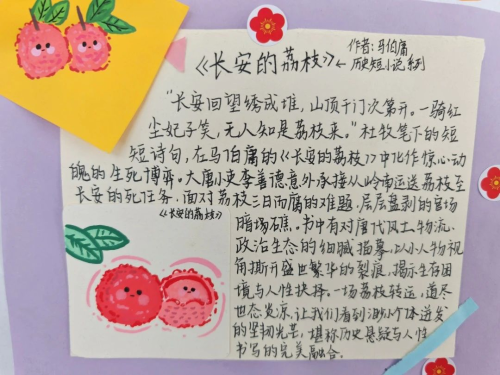 《长安的荔枝》
作者:马伯庸
←历史短小说系列
"长安回望绣成堆，山顶千门次第开。一骑红
尘妃子笑，无人知是荔枝来。"杜牧笔下的短
短诗句，在马伯庸的《长安的荔枝》中化作惊心动
魄的生死博弈。大唐小吏李善德意外承接从岭南运送荔枝至
长安的死任务，面对荔枝三日而腐的难题，层层盘剥的官场
《长安的荔枝》
暗场礁。书中有对唐代风土人物流、
政治生态的细腻描摹，以小人物视
角撕开盛世繁华的裂痕，揭示生存困
境与人性抉择。一场荔枝转运，道尽
世态炎凉，让我们看到渺小个体迸发
的坚韧光芒，堪称历史悬疑与人性
书写的完美融合。